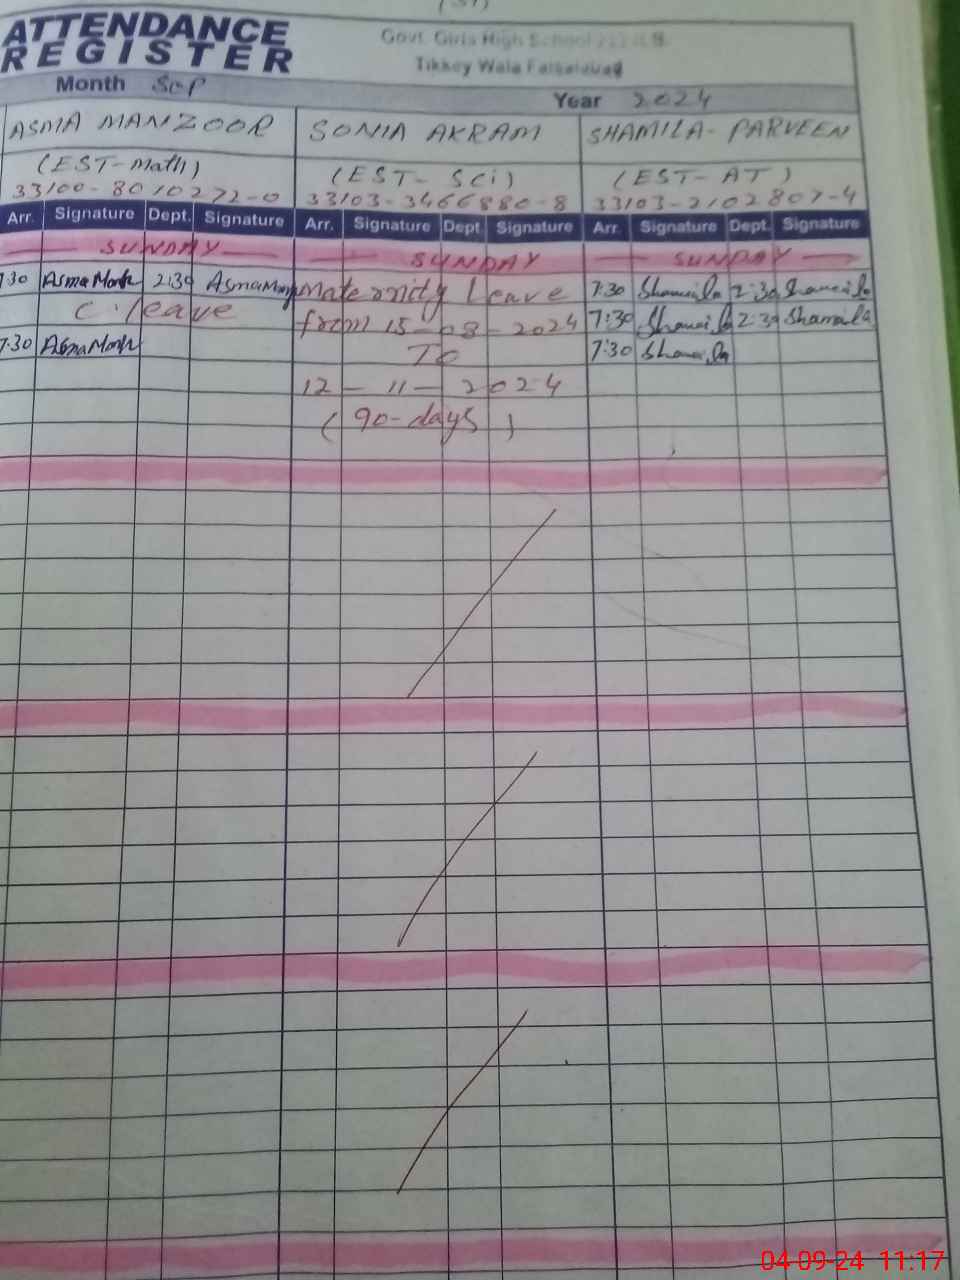 ATTENDANCE REGISTER
Govt. Girls High School
Tikkey Wala Faisalabad
Month Sep
Year 2024
ASMA MANZOOR SONIA AKRAM SHAMILA-PARVEEN
(EST-Math) (EST-Sci) (EST-AT)
33100-8010272-0 33103-3466880-8 33103-2102807-4
Arr. Signature Dept. Signature Arr. Signature Dept Signature Arr. Signature Dept. Signature
SUNDAY SUNDAY SUNDAY
7:30 2:30 Maternity Leave 7:30 Shamila 2:30 Shamila
C. leave from 15-08-2024 7:30 Shamila 2:30 Shamila
7:30 To 7:30 Shamila
12-11-2024
(90-days)
04-09-24 11:17